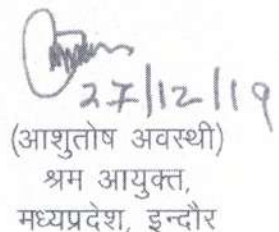 27/12/19
(आशुतोष अवस्थी)
श्रम आयुक्त,
मध्यप्रदेश, इन्दौर